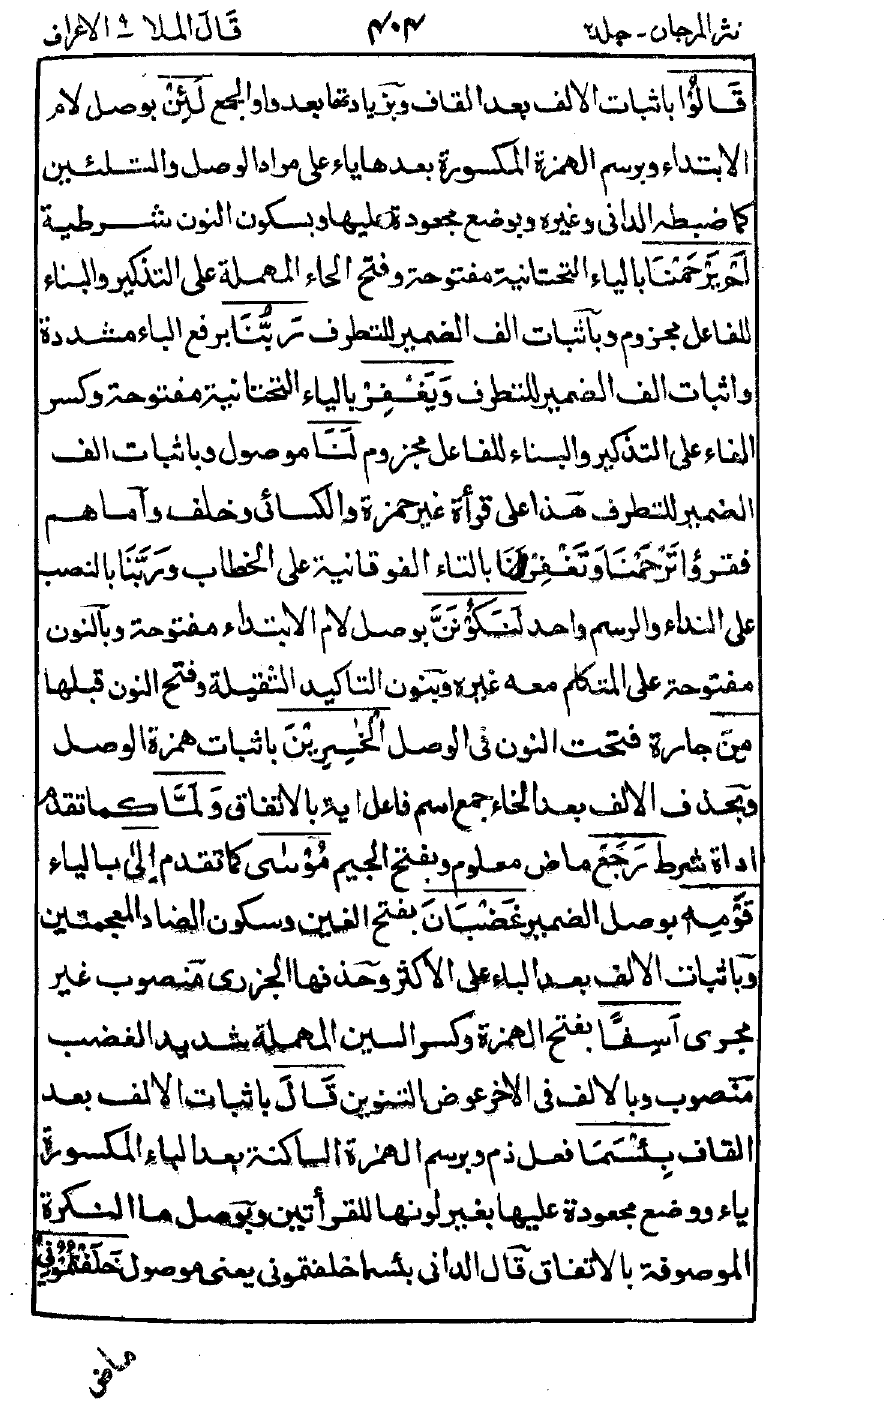 نثر المرجان - جلد٢ ٤٠٤ قَالَ الملا ٩ الاعراف
قَالُوْا باثبات الالف بعد القاف وبزيادتها بعد واو الجمع لَئِنْ بوصل لام
الابتداء وبرسم الهمزة المكسورة بعدها ياء على مراد الوصل والتليين
كما ضبطه الدانى وغيره وبوضع مجعودة عليها وبسكون النون شرطية
لَمْ يَرْحَمْنَا بالياء التحتانية مفتوحة وفتح الحاء المهملة على التذكير والبناء
للفاعل مجزوم وبآثبات الف الضمير للتطرف رَبُّنَا برفع الباء مشددة
واثبات الف الضمير للتطرف وَيَغْفِرْ بالياء التحتانية مفتوحة وكسر
الفاء على التذكير والبناء للفاعل مجزوم لَنَا موصول وباثبات الف
الضمير للتطرف هذا على قرأة غير حمزة والكسائى وخلف وآما هم
فقرؤا تَرْحَمْنَا وَتَغْفِرْ لَنَا بالتاء الفوقانية على الخطاب ورَبَّنَا بالنصب
على النداء والرسم واحد لَنَكُوْنَنَّ بوصل لام الابتداء مفتوحة وبآلنون
مفتوحة على المتكلم معه غيره وبنون التاكيد الثقيلة وفتح النون قبلها
مِنَ جارة فتحت النون فى الوصل الْخٰسِرِيْنَ باثبات همزة الوصل
وبحذف الالف بعد الخاء جمع اسم فاعل اية بالاتفاق وَلَمَّا كما تقدم
اداة شرط رَجَعَ ماض معلوم وبفتح الجيم مُوْسٰى كما تقدم اِلٰى بالياء
قَوْمِهٖ بوصل الضمير غَضْبَانَ بفتح الغين وسكون الضاد المعجمتين
وبآثبات الالف بعد الباء على الاكثر وحذفها الجزرى منصوب غير
مجرى اَسِفًا بفتح الهمزة وكسر السين المهملة شديد الغضب
منصوب وبالالف فى الاخر عوض التنوين قَالَ باثبات الالف بعد
القاف بِئْسَمَا فعل ذم وبرسم الهمزة الساكنة بعد الباء المكسورة
ياء ووضع مجعودة عليها بغير لونها للقرأتين وبوصل ما النكرة
الموصوفة بالاتفاق قآل الدانى بئسما خلفتمونى يعنى موصول خَلَفْتُمُوْنِيْ
ماض